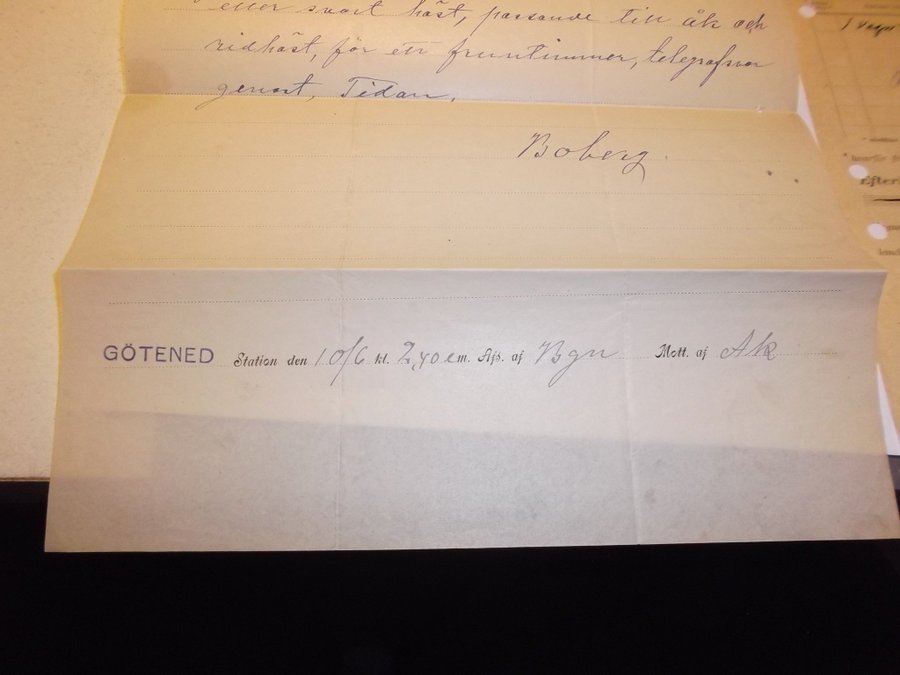 eller svart häst, passande till åk och
ridhäst, för ett fruntimmer, telegrafsvar
genast, Tidan.
Boberg.
GÖTENED Station den 10/6 kl. 2,40 em. Afs. af Bgn Mott. af Ak